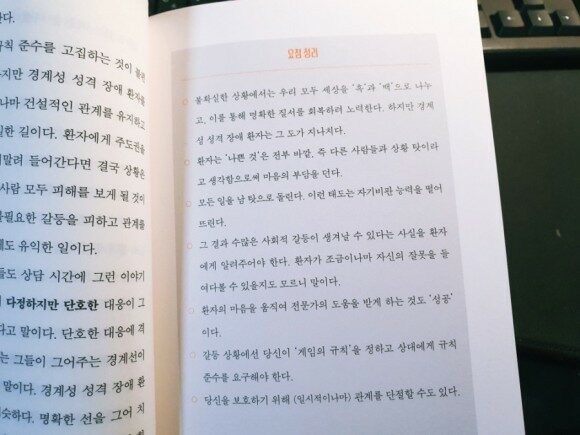 한다.
규칙 준수를 고집하는 것이
지만 경계성 성격 장애 환자를
나마 건설적인 관계를 유지하고
일한 길이다. 환자에게 주도권을
말려 들어간다면 결국 상황은
사람 모두 피해를 보게 될 것이
불필요한 갈등을 피하고 관계를
에도 유익한 일이다.
들도 상담 시간에 그런 이야기
다정하지만 단호한 대응이 그
라고 말이다. 단호한 대응에 격
는 그들이 그어주는 경계선이
말이다. 경계성 성격 장애 환
슷하다. 명확한 선을 그어 치
요점 정리
불확실한 상황에서는 우리 모두 세상을 '흑'과 '백'으로 나누
고, 이를 통해 명확한 질서를 회복하려 노력한다. 하지만 경계
성 성격 장애 환자는 그 도가 지나치다.
환자는 '나쁜 것'은 전부 바깥, 즉 다른 사람들과 상황 탓이라
고 생각함으로써 마음의 부담을 던다.
모든 일을 남 탓으로 돌린다. 이런 태도는 자기비판 능력을 떨어
뜨린다.
그 결과 수많은 사회적 갈등이 생겨날 수 있다는 사실을 환자
에게 알려주어야 한다. 환자가 조금이나마 자신의 잘못을 들
여다볼 수 있을지도 모르니 말이다.
환자의 마음을 움직여 전문가의 도움을 받게 하는 것도 '성공'
이다.
갈등 상황에선 당신이 '게임의 규칙'을 정하고 상대에게 규칙
준수를 요구해야 한다.
당신을 보호하기 위해 (일시적이나마) 관계를 단절할 수도 있다.